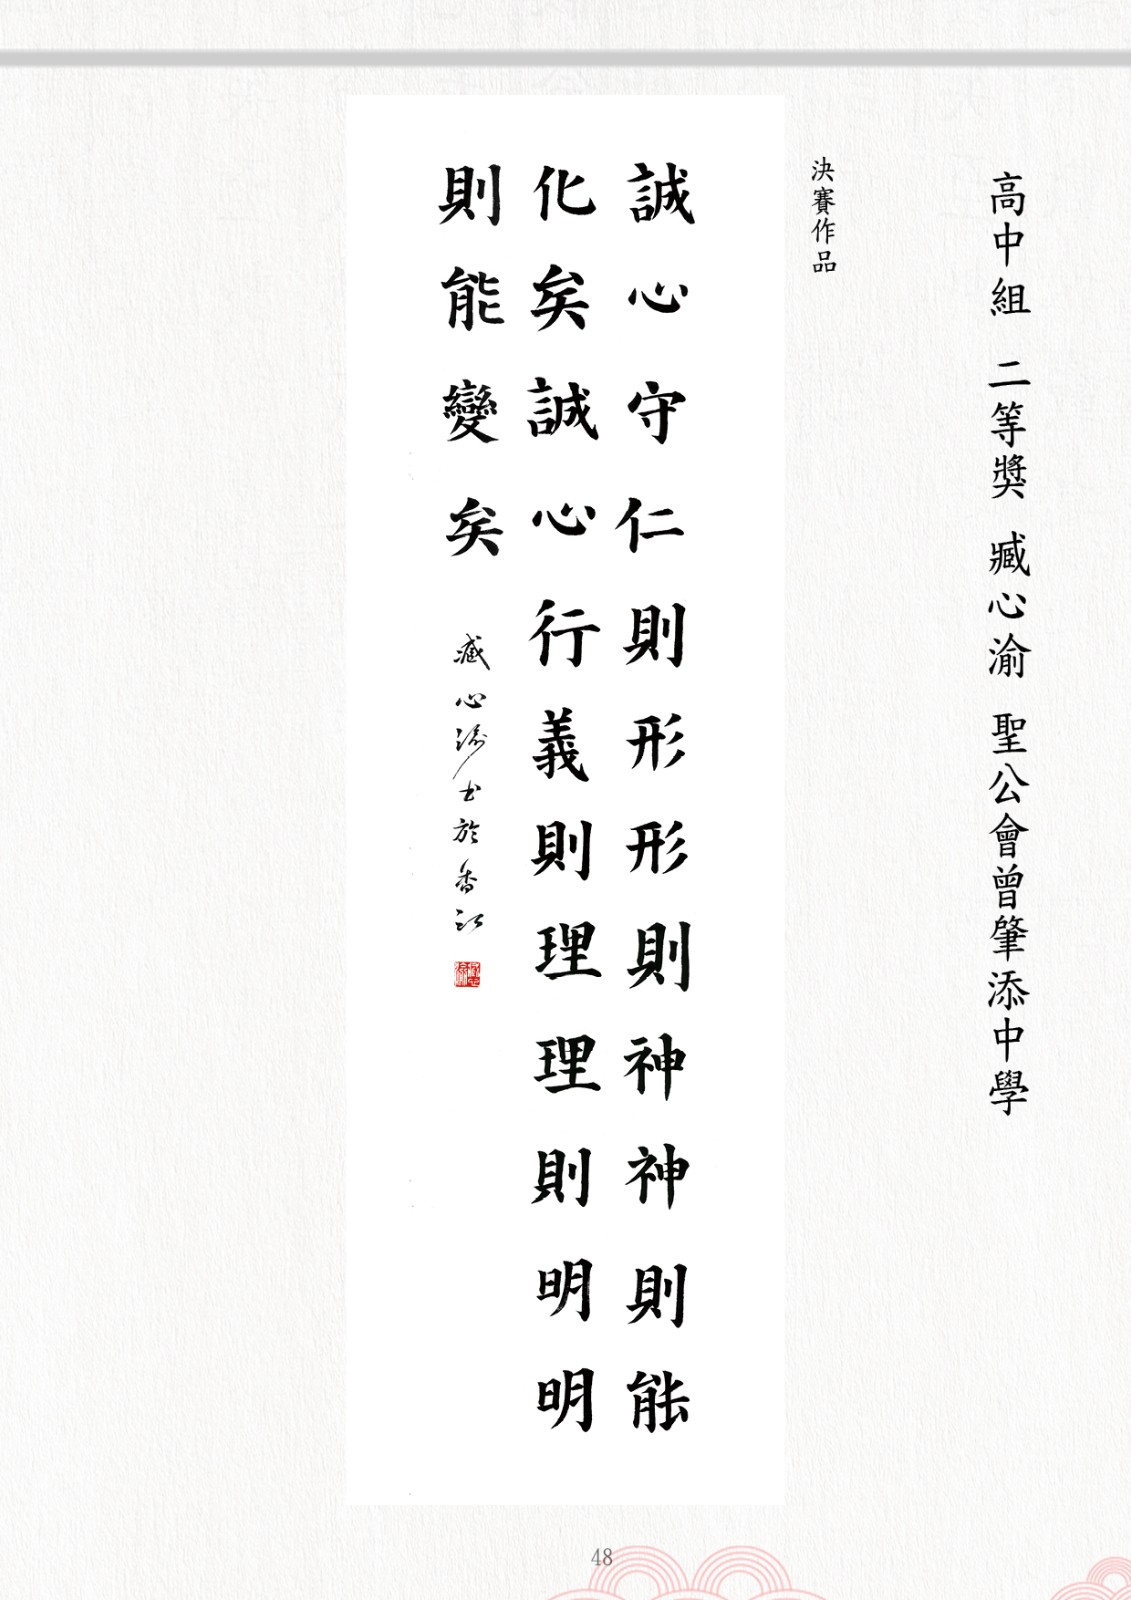 高中組 二等獎 臧心渝 聖公會曾肇添中學
決賽作品
誠心守仁則形形則神神則能
化矣誠心行義則理理則明明
則能變矣
臧心渝书於香江
48